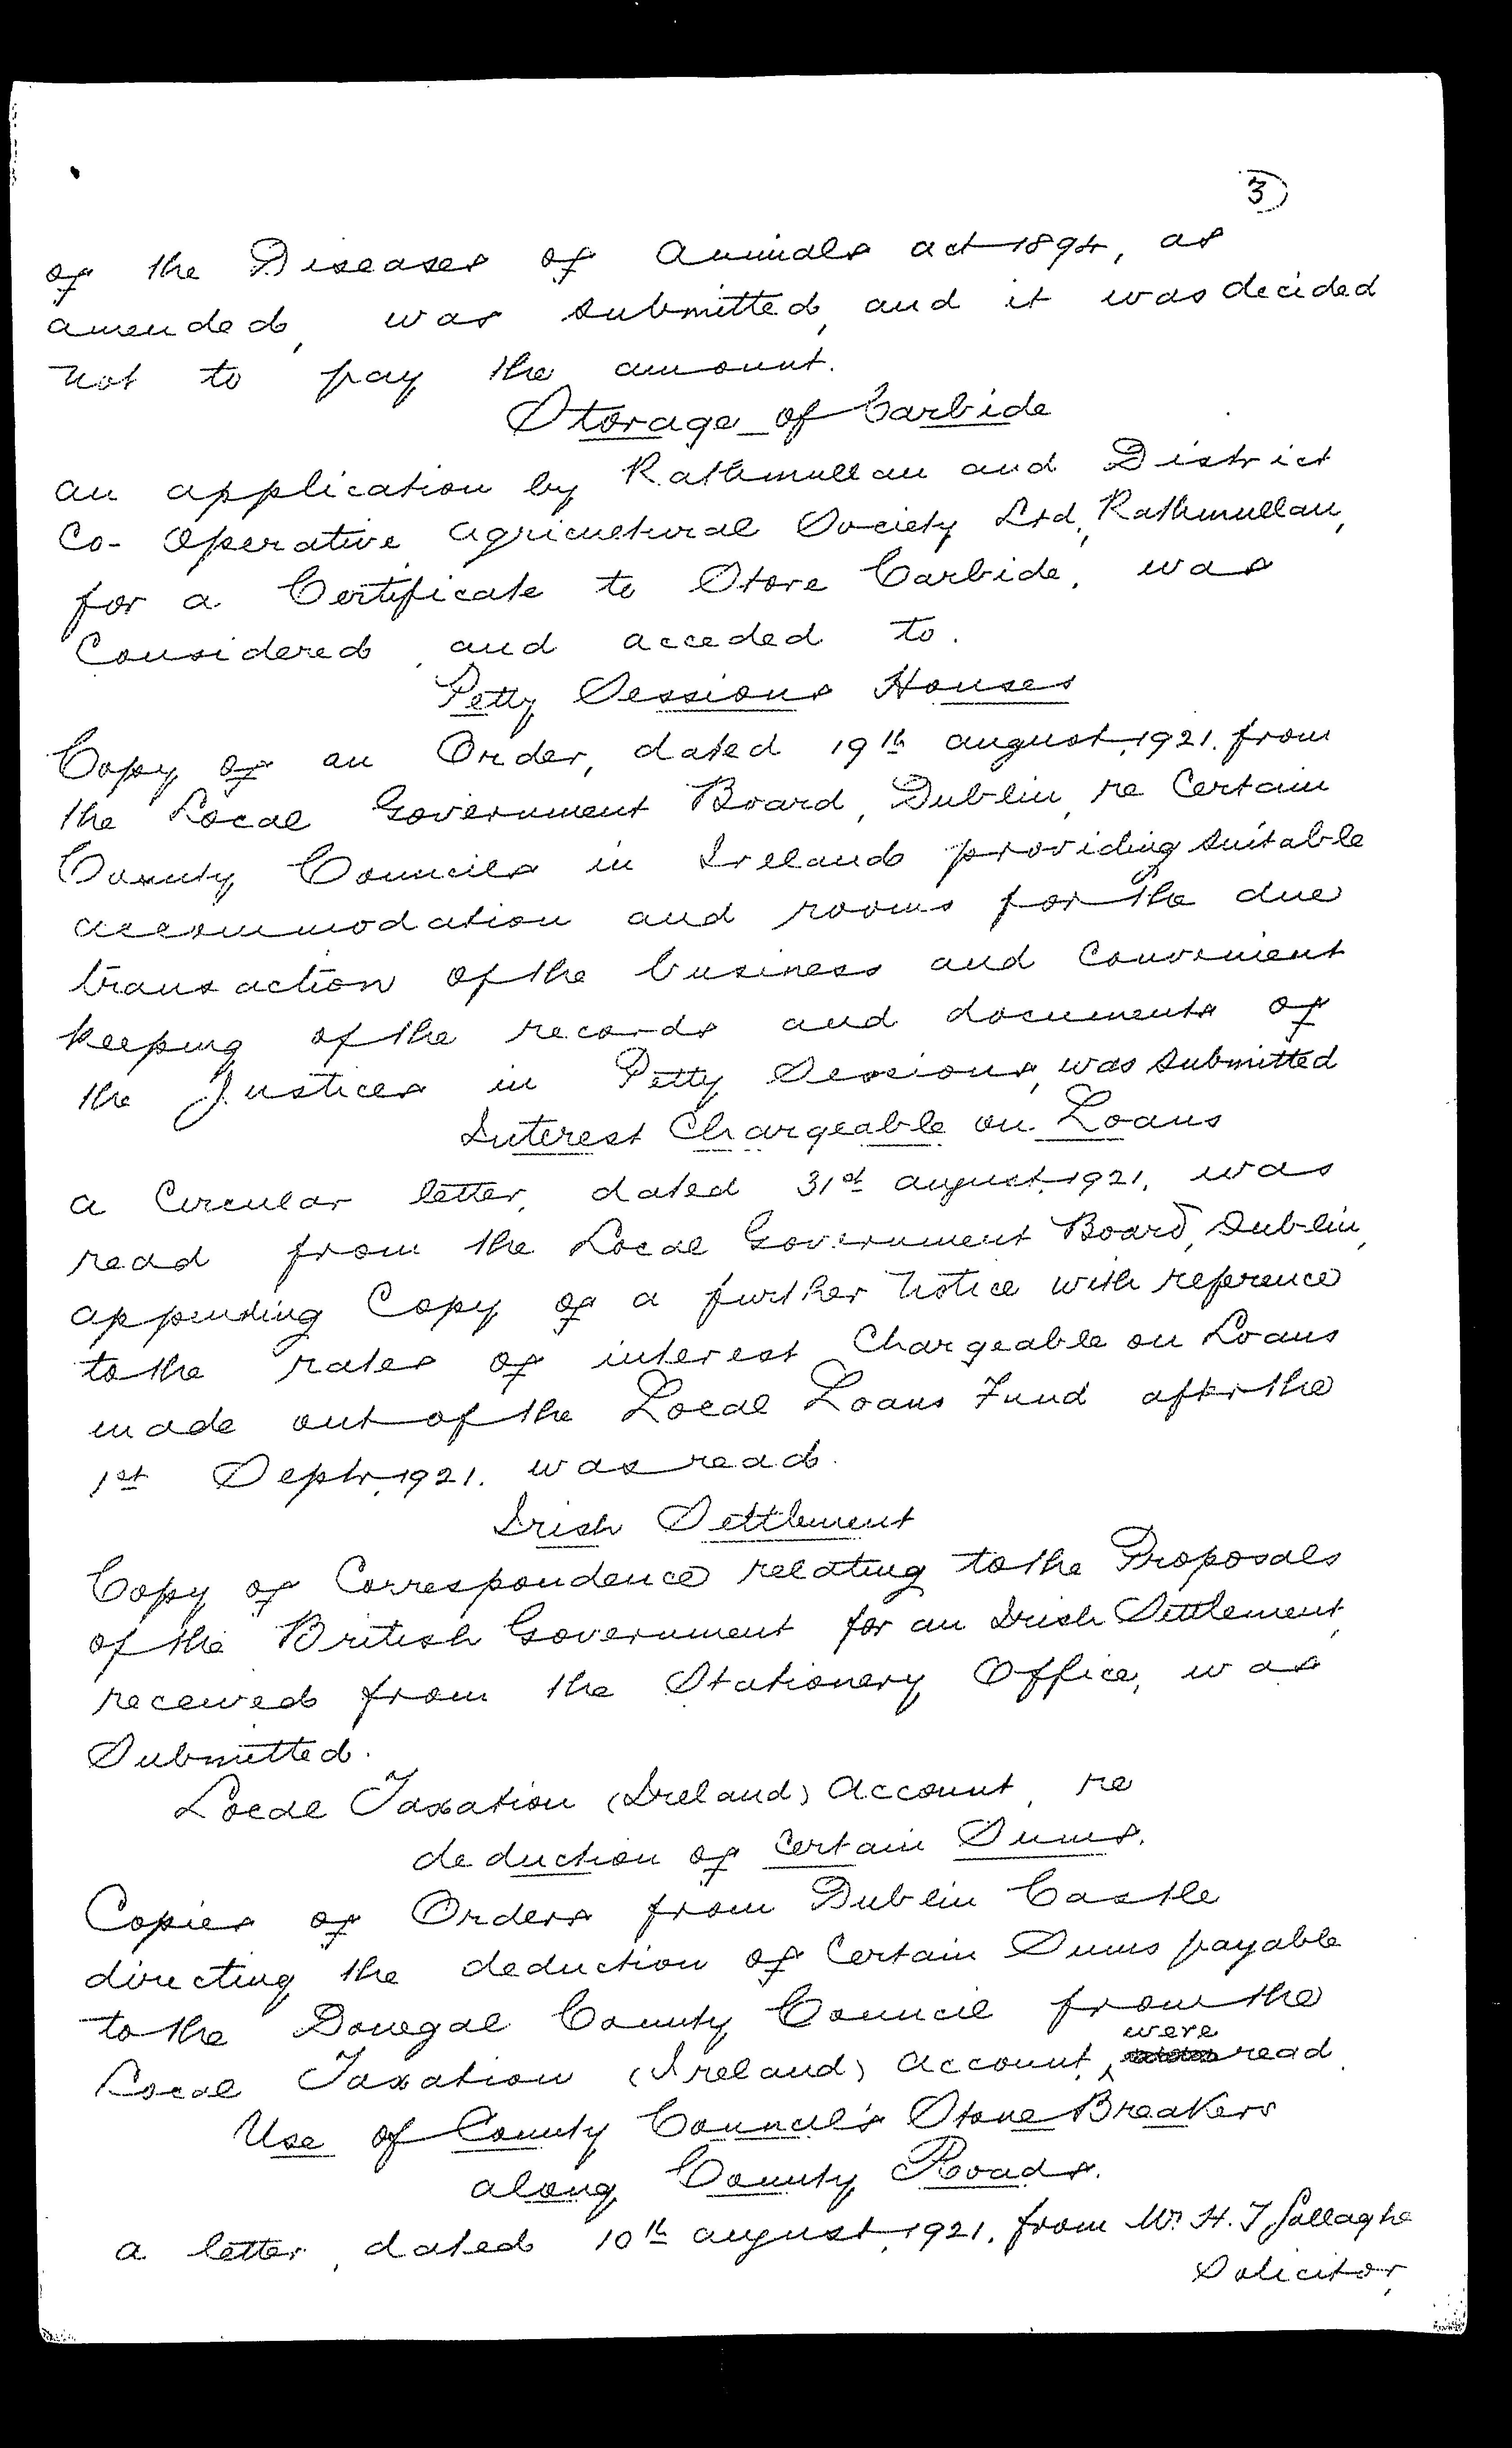 3
of the Diseases of Animals act 1894, as
amended, was submitted, and it was decided
not to pay the amount.
Storage of Carbide
an application by Rathmullan and District
Co-Operative agricultural Society Ltd, Rathmullan,
for a Certificate to Store Carbide, was
Considered, and acceded to.
Petty Sessions Houses
Copy of an Order, dated 19th august, 1921. from
the Local Government Board, Dublin, re Certain
County Councils in Ireland providing suitable
accommodation and rooms for the due
transaction of the business and Convenient
keeping of the records and documents of
the Justices in Petty Sessions, was submitted
Interest Chargeable on Loans
a Circular letter, dated 31st august, 1921, was
read from the Local Government Board, Dublin,
appending Copy of a further notice with reference
to the rates of interest Chargeable on Loans
made out of the Local Loans Fund after the
1st Septr, 1921. was read.
Irish Settlement
Copy of Correspondence relating to the Proposals
of the British Government for an Irish Settlement,
received from the Stationery Office, was
Submitted.
Local Taxation (Ireland) Account, re
deduction of Certain Sums.
Copies of Orders from Dublin Castle
directing the deduction of Certain Sums payable
to the Donegal County Council from the
were
Local Taxation (Ireland) Account, read.
Use of County Council's Stone Breakers
along County Roads.
a letter, dated 10th august, 1921, from Mr. H. T Gallaghe
Solicitor,